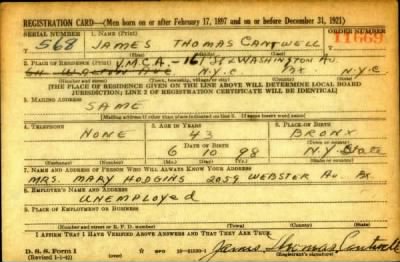 REGISTRATION CARD—(Men born on or after February 17, 1897 and on or before December 31, 1921)
SERIAL NUMBER 1. NAME (Print) ORDER NUMBER
568 JAMES THOMAS CANTWELL 11669
(First) (Middle) (Last)
2. PLACE OF RESIDENCE (Print) Y.M.C.A.-161 ST WASHINGTON AV
N.Y.C Bx N.Y.C
(Number and street) (Town, township, village, or city) (County) (State)
[THE PLACE OF RESIDENCE GIVEN ON THE LINE ABOVE WILL DETERMINE LOCAL BOARD
JURISDICTION; LINE 2 OF REGISTRATION CERTIFICATE WILL BE IDENTICAL]
3. MAILING ADDRESS
SAME
[Mailing address if other than place indicated on line 2. If same insert word same]
4. TELEPHONE 5. AGE IN YEARS 6. PLACE OF BIRTH
NONE 43 BRONX
DATE OF BIRTH (Town or county)
6 10 98 N.Y. State
(Exchange) (Number) (Mo.) (Day) (Yr.) (State or country)
7. NAME AND ADDRESS OF PERSON WHO WILL ALWAYS KNOW YOUR ADDRESS
MRS. MARY HODGINS 2059 WEBSTER AV BX.
8. EMPLOYER'S NAME AND ADDRESS
UNEMPLOYED
9. PLACE OF EMPLOYMENT OR BUSINESS
(Number and street or R. F. D. number) (Town) (County) (State)
I AFFIRM THAT I HAVE VERIFIED ABOVE ANSWERS AND THAT THEY ARE TRUE.
D. S. S. Form 1
(Revised 1-1-42) James Thomas Cantwell
(Registrant's signature)